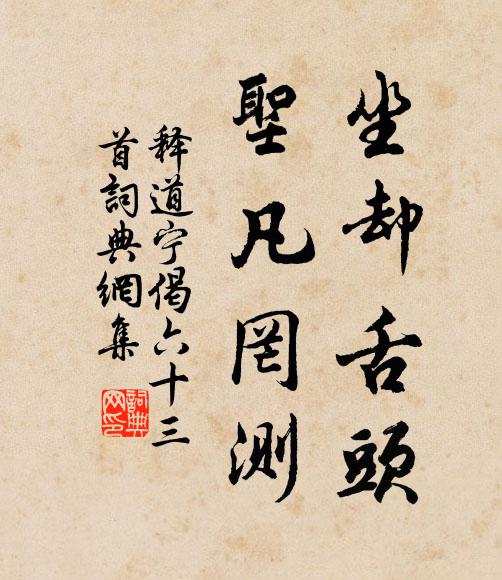 坐却舌頭
聖凡罔測
释道宁偈六十三
首詞典網集
詞典
网印